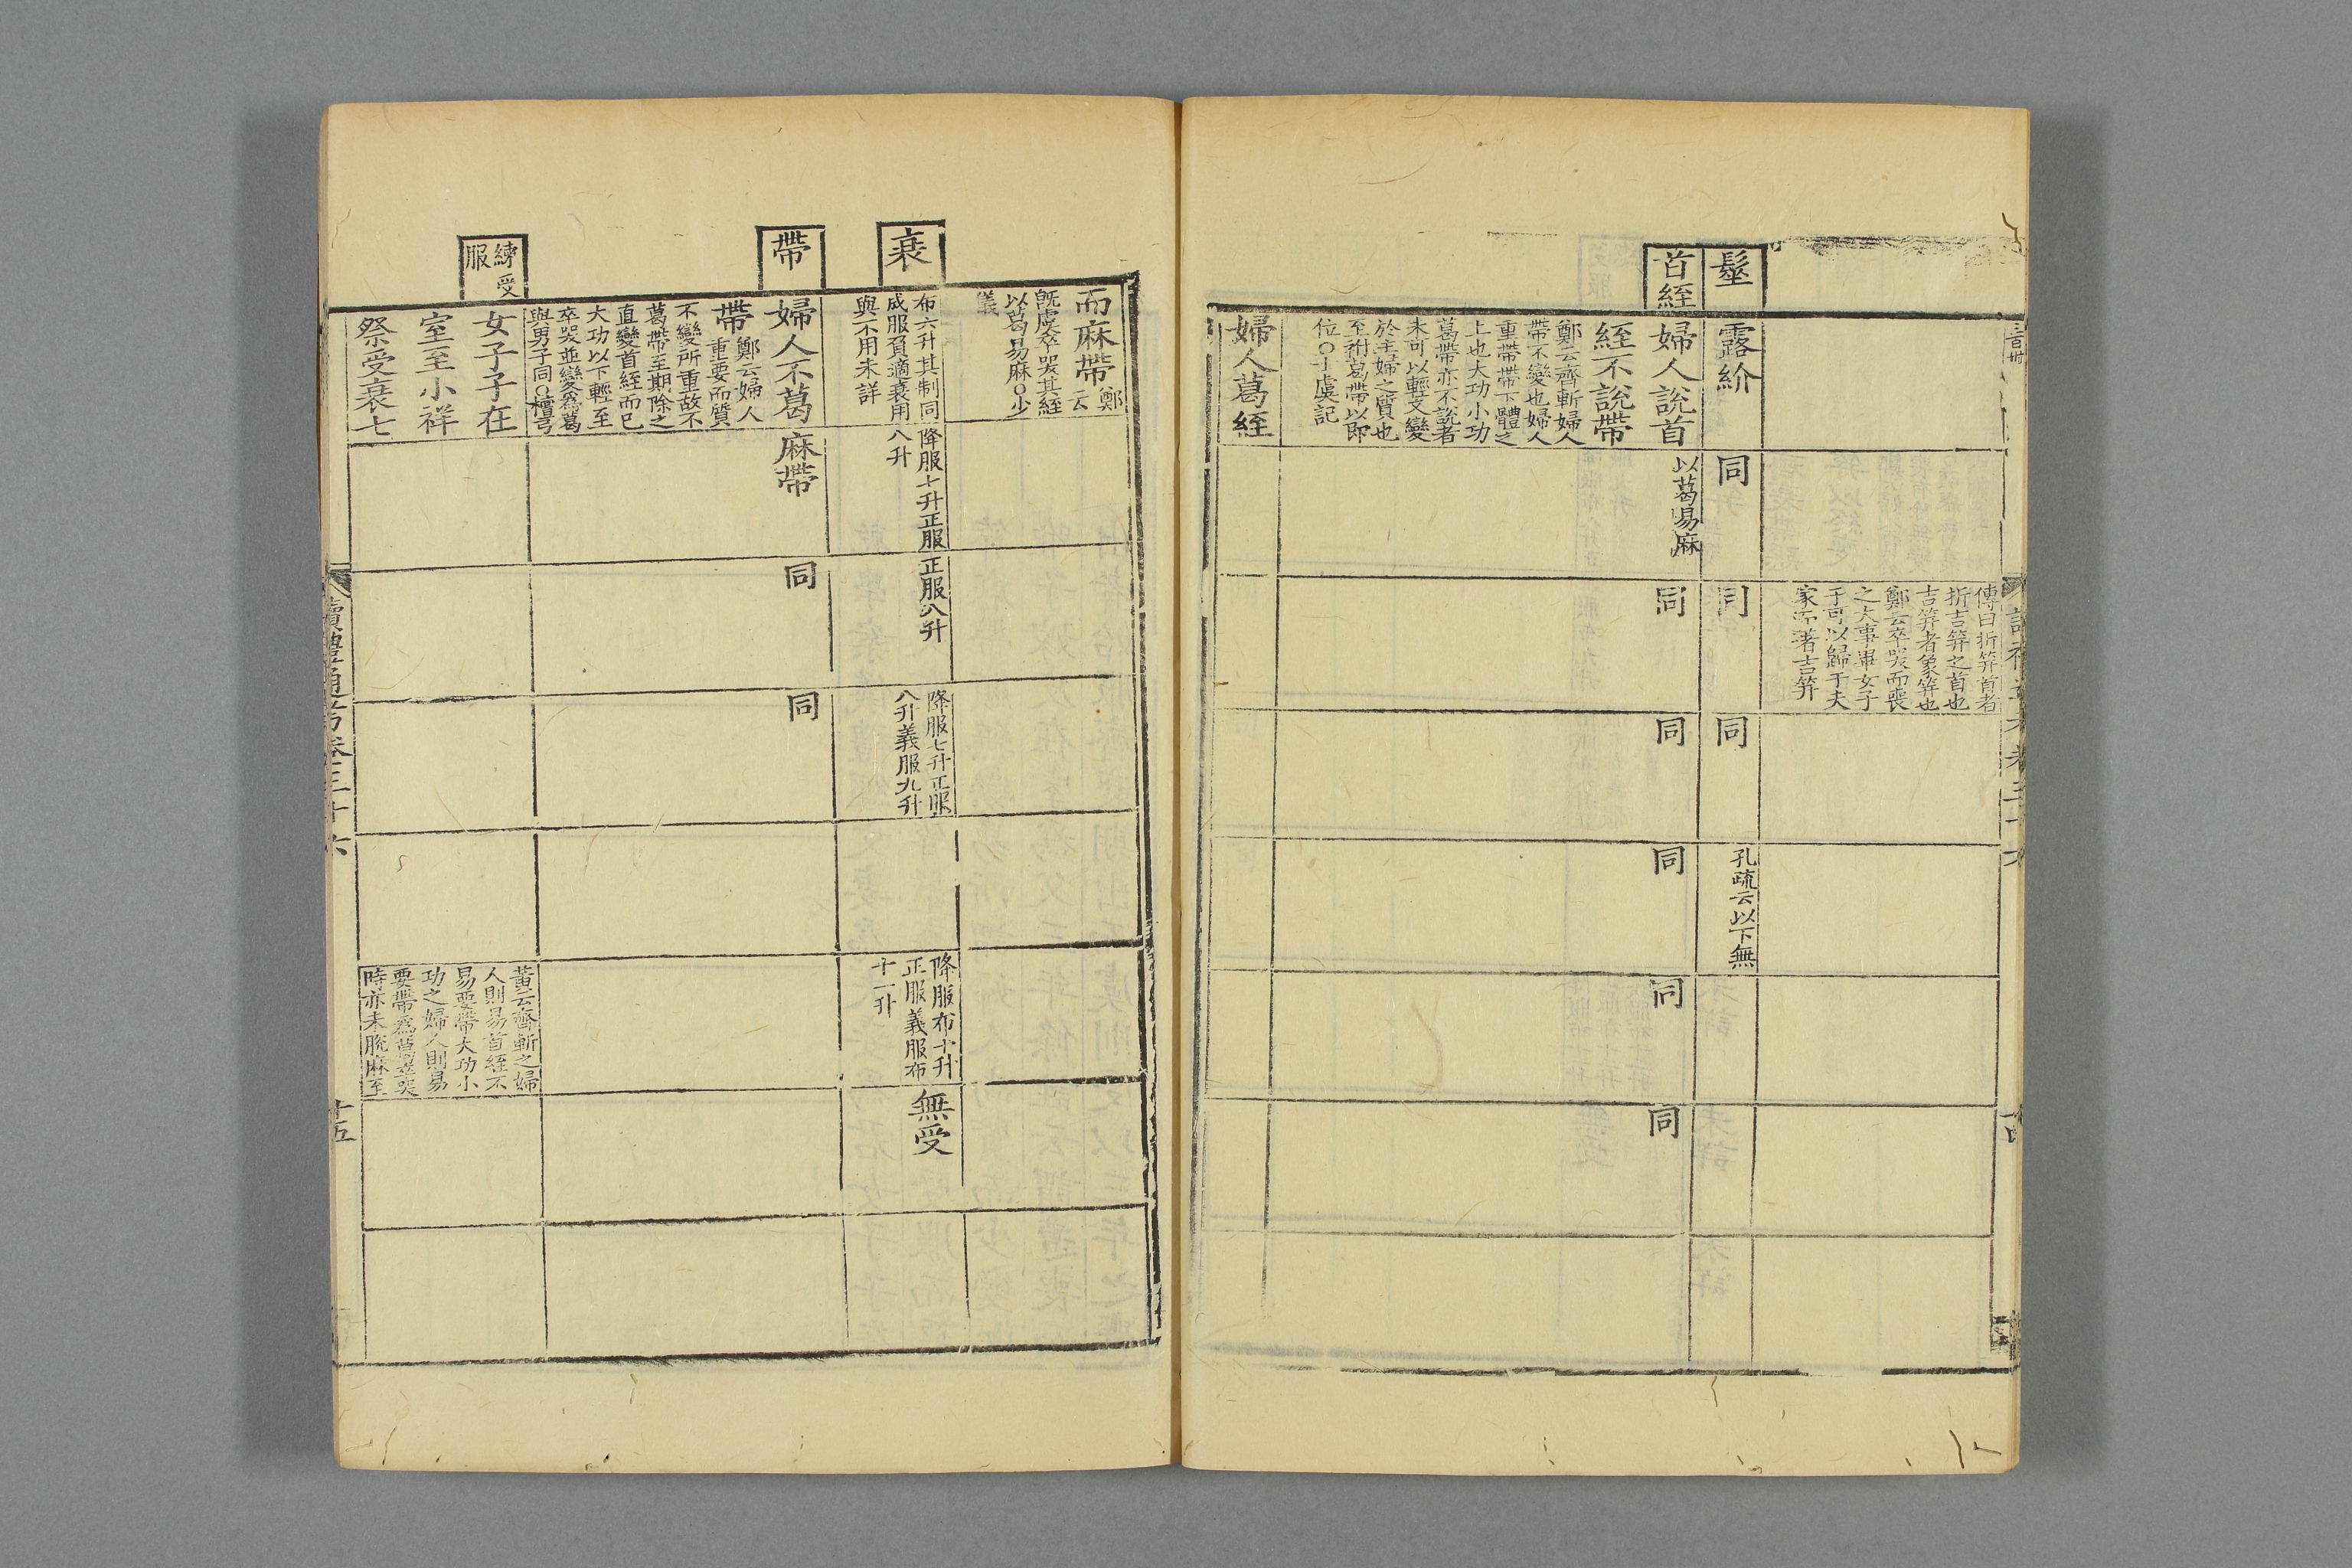 傳曰折筓首者
折吉筓之首也
吉筓者象筓也
鄭云卒哭而喪
之大事畢女子
子可以歸于夫
家而著吉筓
髽
露紒
同
同
同
孔疏云以下無
首絰
婦人說首
絰不說帶
鄭云齊斬婦人
帶不變也婦人
重帶帶下體之
上也大功小功
葛帶亦不說者
未可以輕文變
於主婦之質也
至祔葛帶以即
位○士虞記
以葛易麻
同
同
同
同
同
婦人葛絰
而麻帶鄭云
旣虞卒哭其絰
以葛易麻○少
儀
衰
布六升其制同
成服負適衰用
與不用未詳
降服七升正服
八升
正服八升
降服七升正服
八升義服九升
降服布十升
正服義服布
十一升
無受
帶
婦人不葛
帶鄭云婦人
重要而質
不變所重故不
葛帶至期除之
直變首絰而已
大功以下輕至
卒哭並變爲葛
與男子同○檀弓
麻帶
同
同
練受
服
女子子在
室至小祥
祭受衰七
董云齊斬之婦
人則易首絰不
易要帶大功小
功之婦人則易
要帶爲葛卒哭
時亦未脫麻至
讀禮通考卷三十六
十五